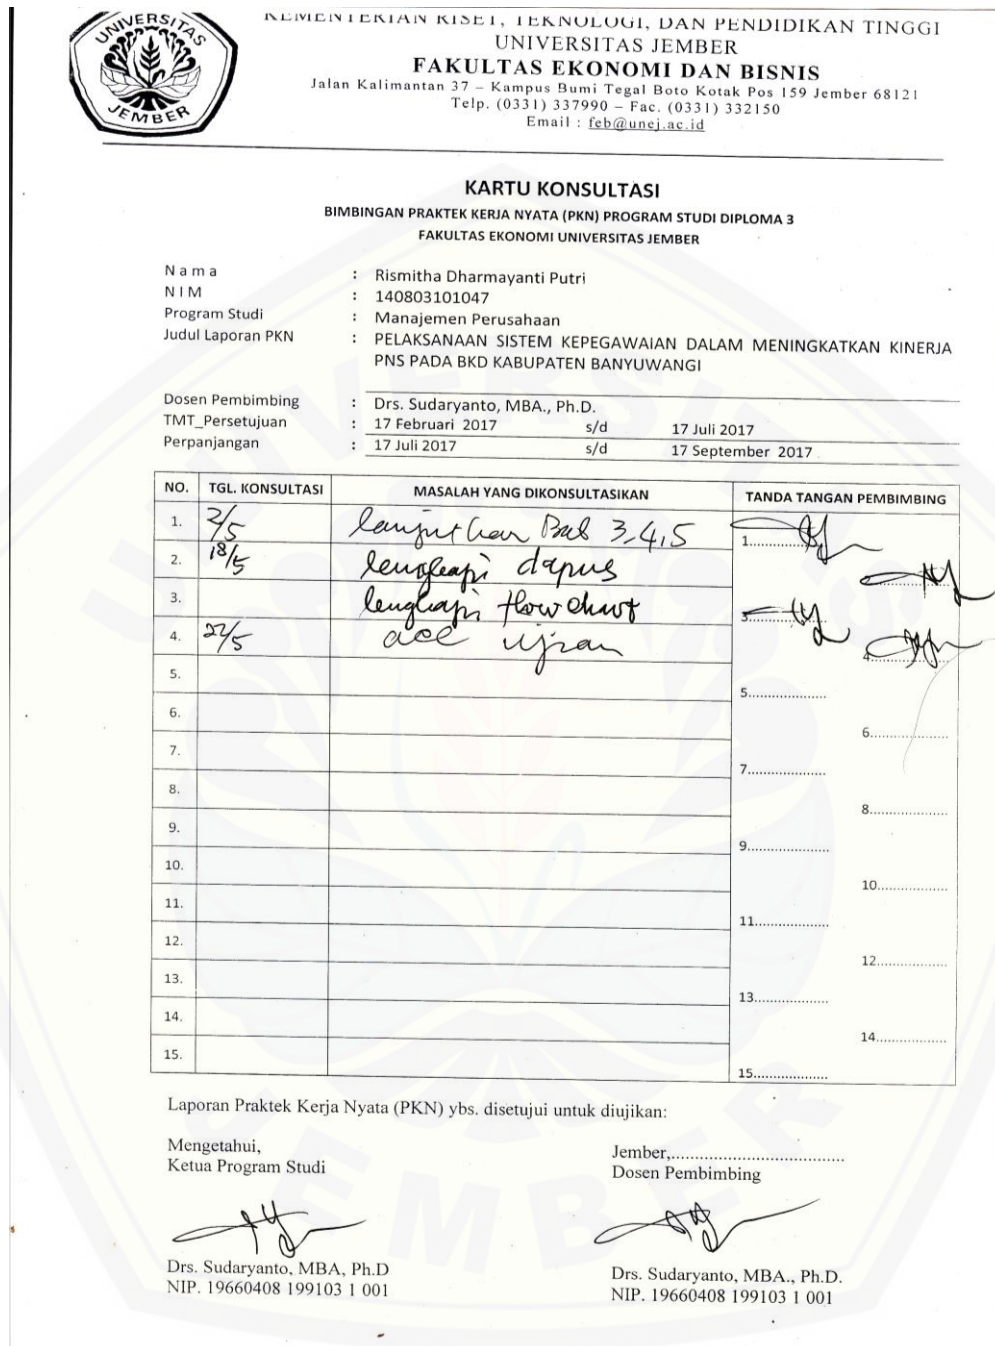 UNIVERSITAS JEMBER
KEMENTERIAN RISET, TEKNOLOGI, DAN PENDIDIKAN TINGGI
UNIVERSITAS JEMBER
FAKULTAS EKONOMI DAN BISNIS
Jalan Kalimantan 37 – Kampus Bumi Tegal Boto Kotak Pos 159 Jember 68121
Telp. (0331) 337990 – Fac. (0331) 332150
Email : feb@unej.ac.id
KARTU KONSULTASI
BIMBINGAN PRAKTEK KERJA NYATA (PKN) PROGRAM STUDI DIPLOMA 3
FAKULTAS EKONOMI UNIVERSITAS JEMBER
N a m a : Rismitha Dharmayanti Putri
N I M : 140803101047
Program Studi : Manajemen Perusahaan
Judul Laporan PKN : PELAKSANAAN SISTEM KEPEGAWAIAN DALAM MENINGKATKAN KINERJA
PNS PADA BKD KABUPATEN BANYUWANGI
Dosen Pembimbing : Drs. Sudaryanto, MBA., Ph.D.
TMT_Persetujuan : 17 Februari 2017 s/d 17 Juli 2017
Perpanjangan : 17 Juli 2017 s/d 17 September 2017
NO. TGL. KONSULTASI MASALAH YANG DIKONSULTASIKAN TANDA TANGAN PEMBIMBING
1. 2/5 lanjutkan Bab 3,4,5 1...............
2. 18/5 lengkapi dapus
3. lengkapi flow chart 3...............
4. 22/5 acc ujian 4...............
5. 5...................
6. 6...................
7. 7...................
8. 8...................
9. 9...................
10. 10.................
11. 11.................
12. 12.................
13. 13.................
14. 14.................
15. 15.................
Laporan Praktek Kerja Nyata (PKN) ybs. disetujui untuk diujikan:
Mengetahui,
Ketua Program Studi
Jember,....................................
Dosen Pembimbing
Drs. Sudaryanto, MBA, Ph.D
NIP. 19660408 199103 1 001
Drs. Sudaryanto, MBA., Ph.D.
NIP. 19660408 199103 1 001